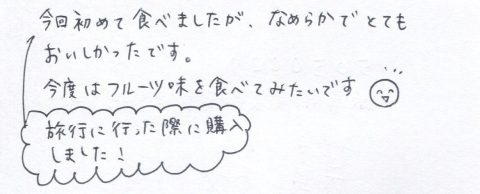 今回初めて食べましたが、なめらかでとても
おいしかったです。
今度はフルーツ味を食べてみたいです
旅行に行った際に購入
しました！